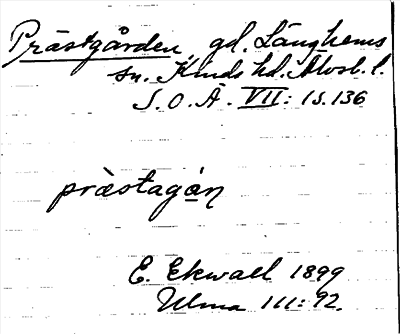 Prästgården, gd. Länghems
sn. Kinds hd. Älvsb. l.
S. O. Ä. VII: 1 s. 136
prästagán
E. Ekwall 1899
Ulma 111: 92.